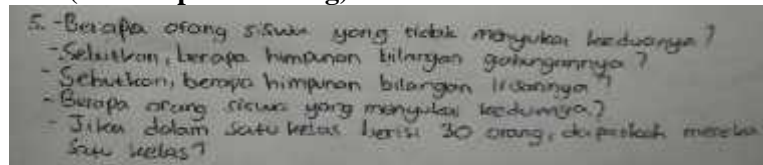 5. - Berapa orang siswa yang tidak menyukai keduanya?
- Sebutkan, berapa himpunan bilangan gabungannya?
- Sebutkan, berapa himpunan bilangan irisannya?
- Berapa orang siswa yang menyukai keduanya?
- Jika dalam satu kelas berisi 30 orang, dapatkah mereka
satu kelas?